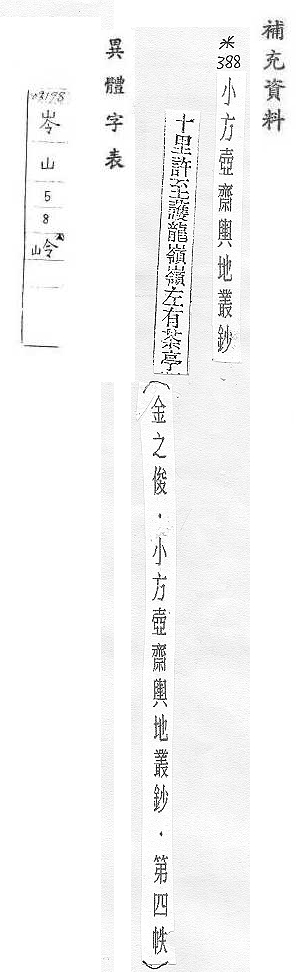 補充資料
米388
小方壺齋輿地叢鈔
十里許至護龍嶺嶺左有茶亭
(金之俊.小方壺齋輿地叢鈔.第四帙)
異體字表
岑
山
5
8
岭